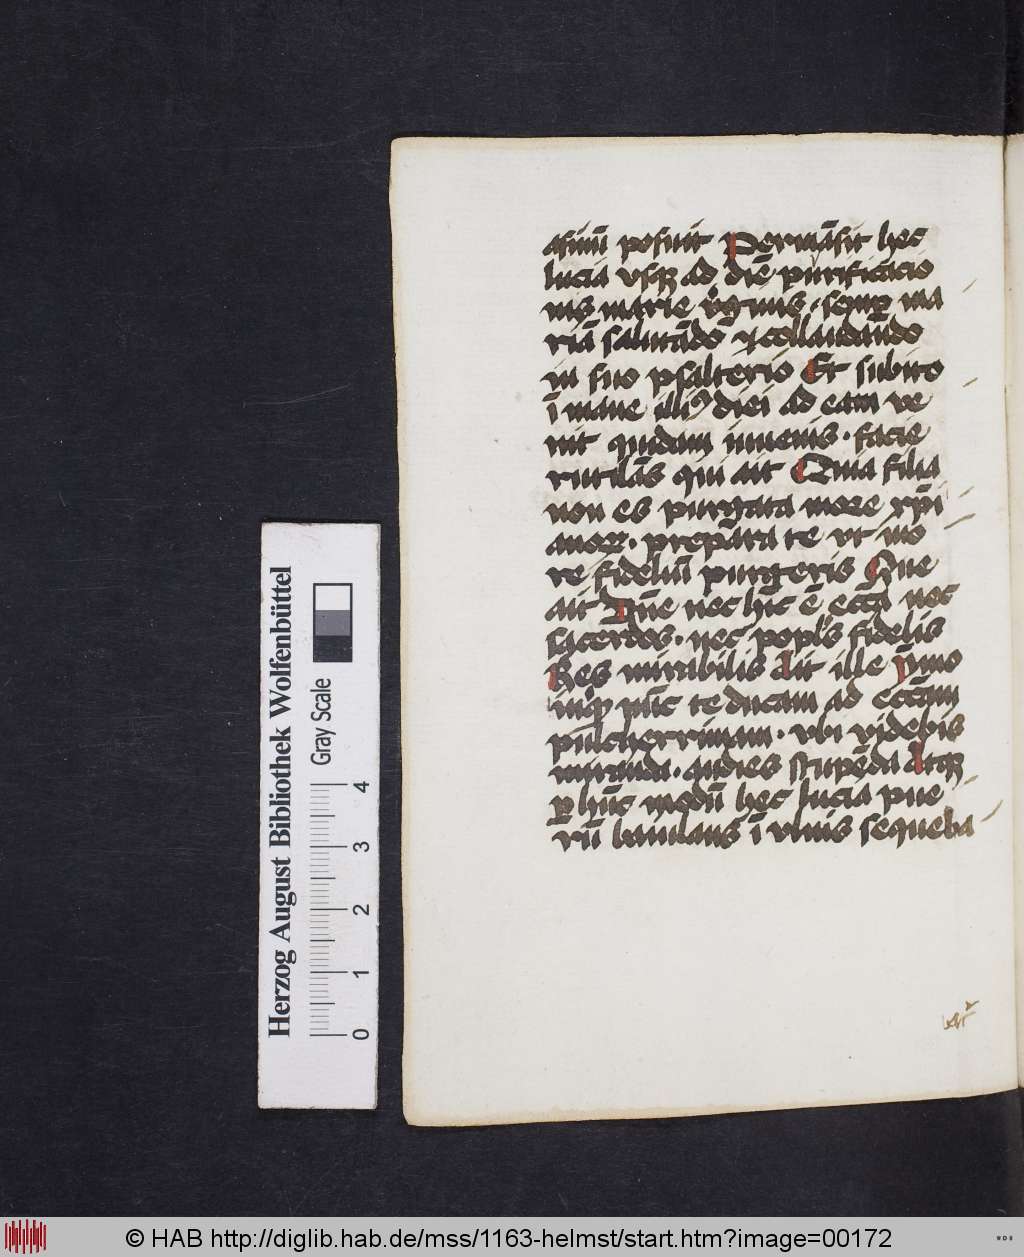 asinū posuit Permāsit hec
lucia vsqꝫ ad diē purificacio
nis marie v̓ginis · semꝑ ma
riā salutādo ⁊ collaudādo
in suo psalterio Et subito
ī mane illiꝯ diei ad eam ve
nit quidam iuuenis · facie
rutilās qui ait Quia filia
non es purgata more xp̄i
anoꝝ · prepara te vt mo
re fideliū purgeris Que
ait Dn̄e nec hic ē ecc̄a nec
sacerdos · nec popl's fidelis
Res mirabilis Ait ille ymo
inq̄ nūc te ducam ad ecc̄am
pulcherrimam · vbi videbis
miranda · audies stupēda Atqꝫ
ꝑ hūc modū hec lucia pue
rū baiulans ī vlnis sequeba
Herzog August Bibliothek Wolfenbüttel
Gray Scale
0 1 2 3 4
© HAB http://diglib.hab.de/mss/1163-helmst/start.htm?image=00172